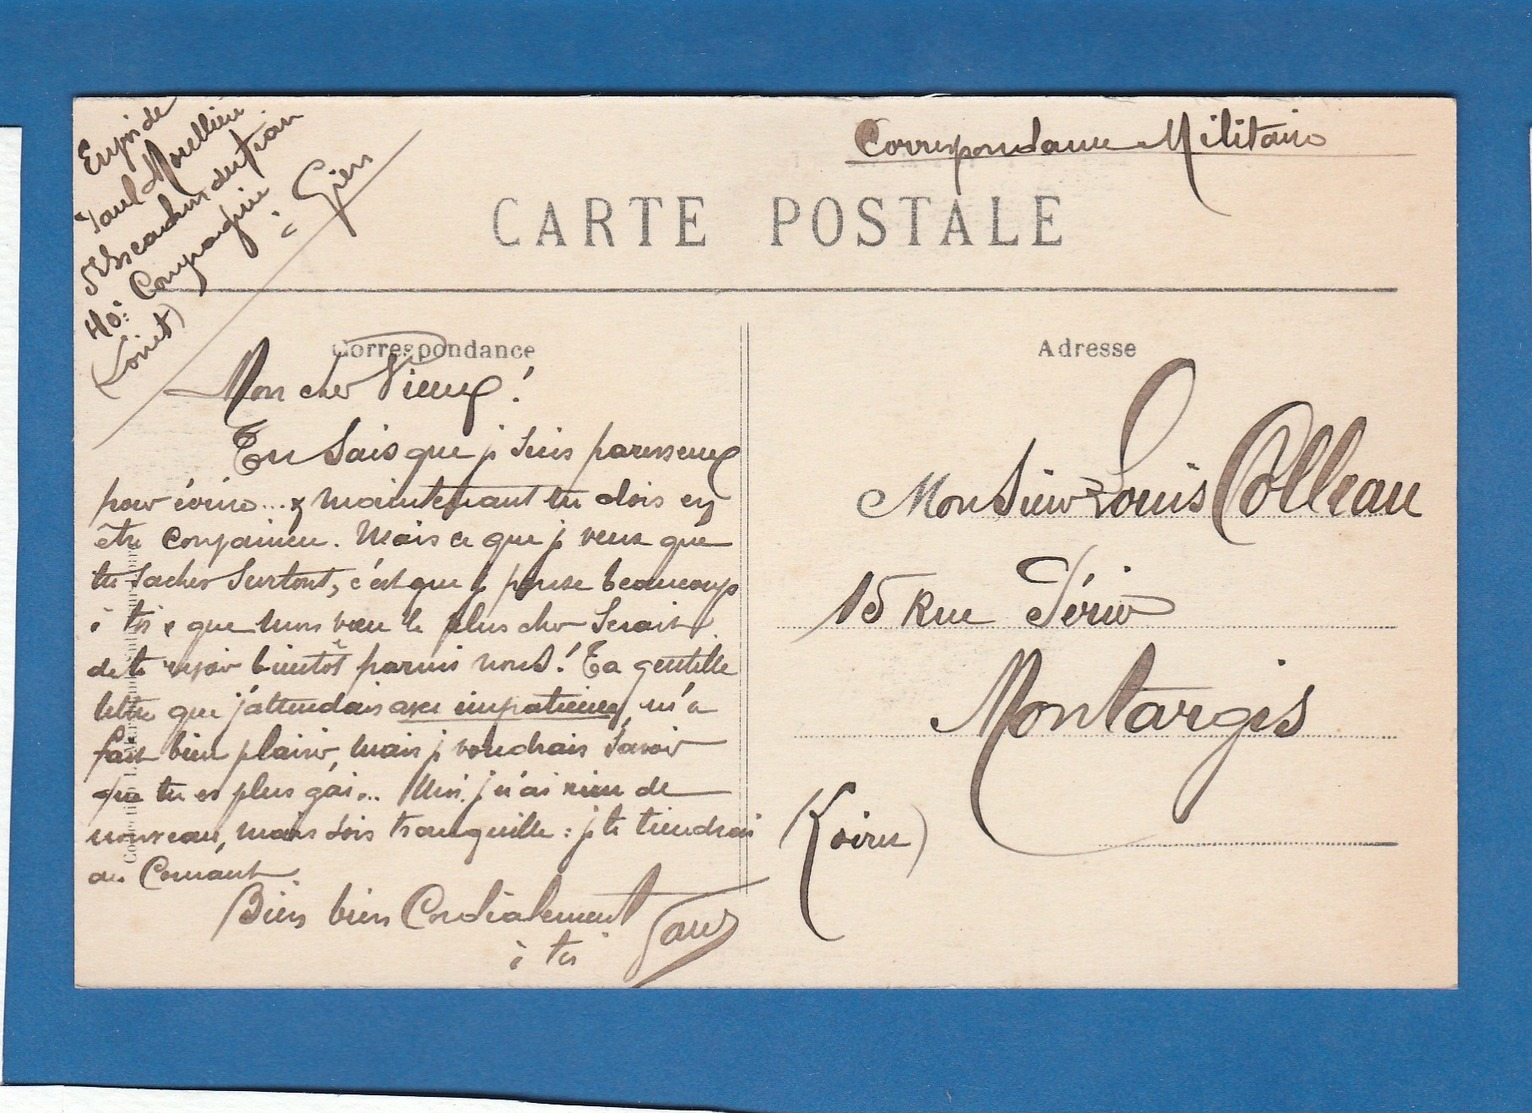 Envoi de
Paul Morellière
5e Escadron du train
40e Compagnie
à Gien
(Loiret)
Correspondance Militaire
CARTE POSTALE
Correspondance
Adresse
Mon cher Vieux !
Tu sais que j suis paresseux
pour écrire... & maintenant tu dois en
être convaincu. Mais ce que j veux que
tu saches surtout, c'est que j pense beaucoup
à toi & que mon vœu le plus cher serait
de te revoir bientôt parmi nous ! Ta gentille
lettre que j'attendais avec impatience, m'a
fait bien plaisir, mais j voudrais savoir
que tu es plus gai... Moi j n'ai rien de
nouveau, mais sois tranquille : j te tiendrai
au Courant.
Bien bien Cordialement
à toi
Paul
Monsieur Louis Colleau
15 Rue Périer
Montargis
(Loiret)
Collection